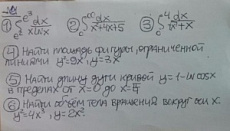 ① ∫ e² e³ dx / x ln x ② ∫ 0 ∞ dx / x²+4x+5 ③ ∫ 0 4 dx / x²+x
④ Найти площадь фигуры, ограниченной
линиями y²=9x, y=3x
⑤ Найти длину дуги кривой y=1-ln cos x
в пределах от x=0 до x=π/6
⑥ Найти объём тела вращения вокруг оси x.
y²=4x, y=2x²